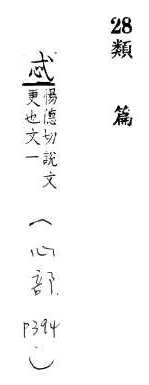 28類篇
忒
惕德切說文
更也文一
(心部 P394.)